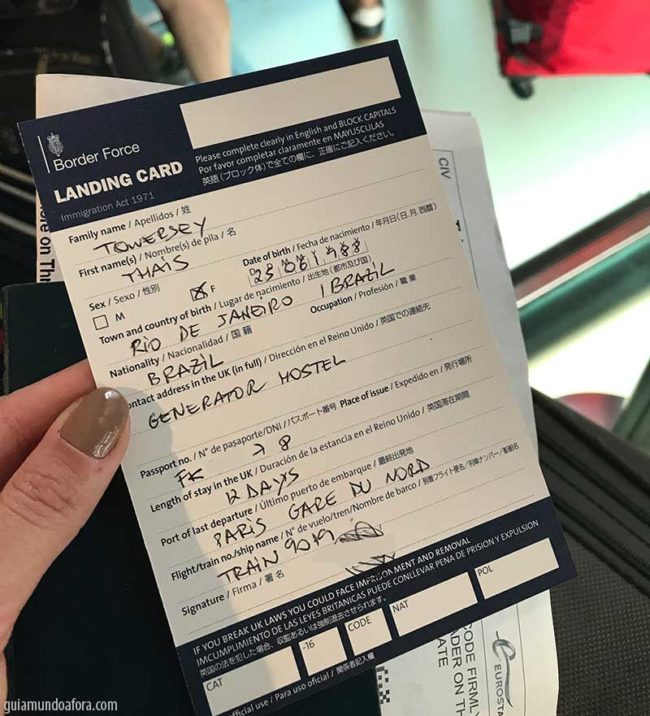 Border Force
LANDING CARD
Immigration Act 1971
Please complete clearly in English and BLOCK CAPITALS
Por favor completar claramente en MAYUSCULAS
英語(ブロック体)で全ての欄に、正確にご記入ください。
Family name / Apellidos / 姓
TOWERSEY
First name(s) / Nombre(s) de pila / 名
THAÍS
Sex / Sexo / 性別
M
F
Date of birth / Fecha de nacimiento / 年月日(日.月.西暦)
Town and country of birth / Lugar de nacimiento / 出生地(都市及び国)
RIO DE JANEIRO / BRAZIL
Nationality / Nacionalidad / 国籍
BRAZIL
Occupation / Profesión / 職業
ontact address in the UK (in full) / Dirección en el Reino Unido / 英国での連絡先
GENERATOR HOSTEL
Passport no. / Nº de pasaporte/DNI / パスポート番号
Place of issue / Expedido en / 発行場所
FK 78
Length of stay in the UK / Duración de la estancia en el Reino Unido / 英国滞在期間
12 DAYS
Port of last departure / Último puerto de embarque / 最終出発地
PARIS GARE DU NORD
Flight/train no./ship name / Nº de vuelo/tren/Nombre de barco / 到着フライト便名/列車ナンバー/船舶名
TRAIN 9019
Signature / Firma / 署名
IF YOU BREAK UK LAWS YOU COULD FACE IMPRISONMENT AND REMOVAL
IMCUMPLIMIENTO DE LAS LEYES BRITANICAS PUEDE CONLLEVAR PENA DE PRISION Y EXPULSION
英国の法を犯した場合、収監あるいは強制退去させられます。
CAT
-16
CODE
NAT
POL
fficial use / Para uso oficial / 関係者記入欄
ore on Th
CIV
CODE FIRML
DER ON TH
ATE
EUROSTA
guiamundoafora.com